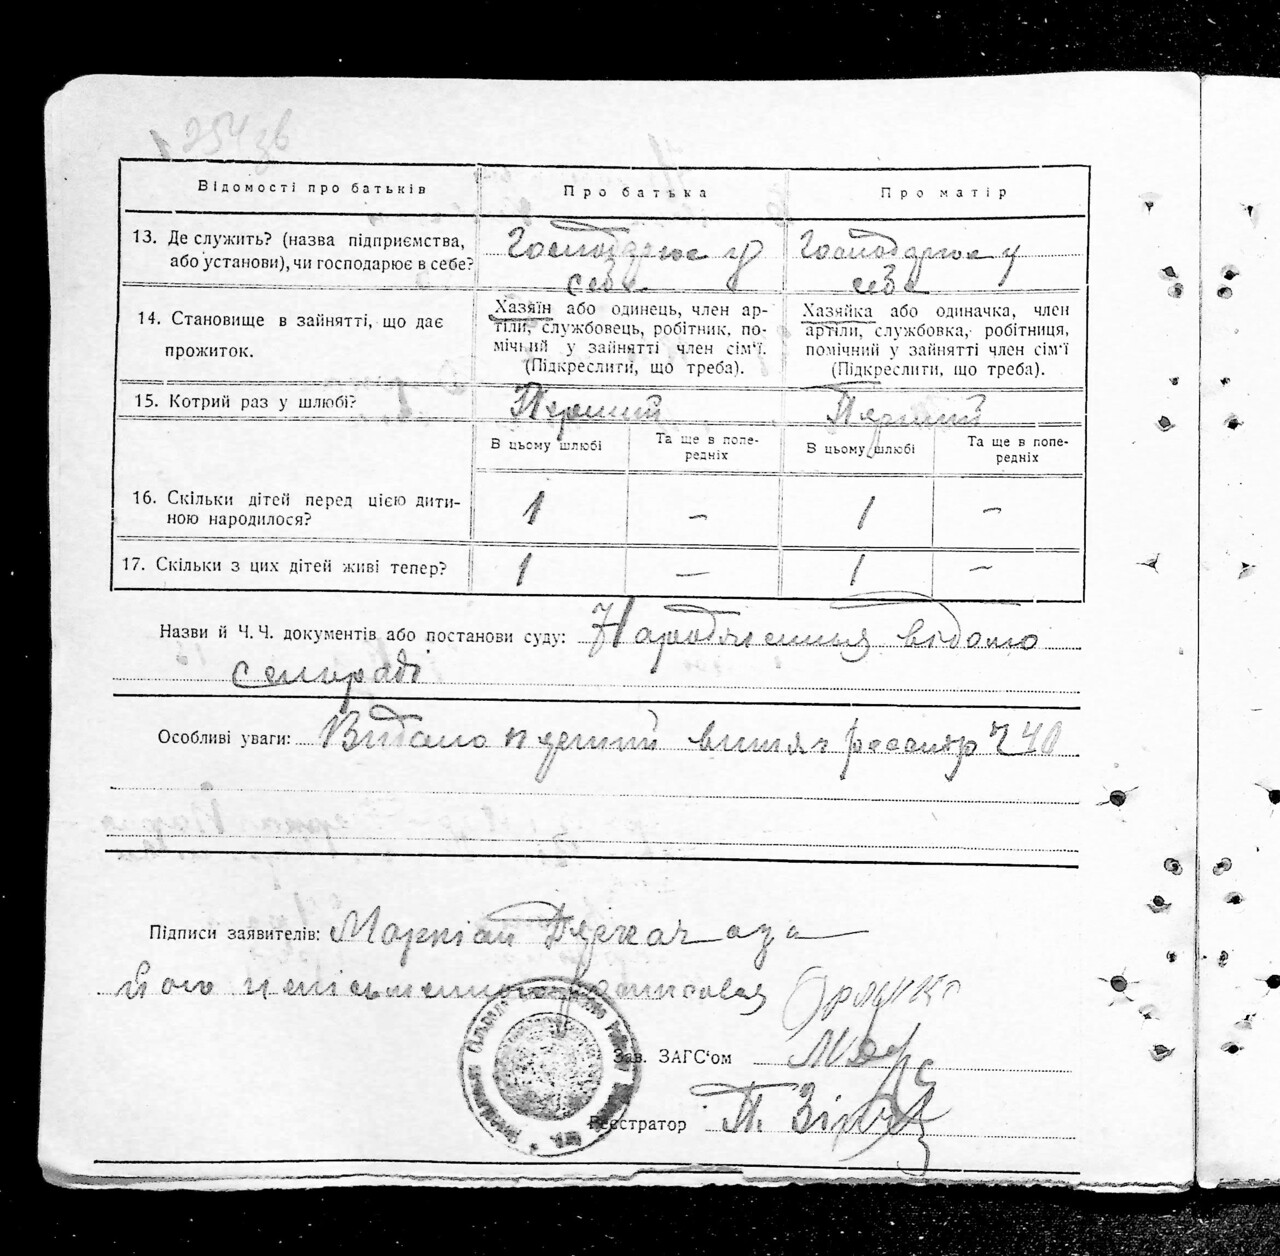 254 зв
Відомості про батьків
Про батька
Про матір
13. Де служить? (назва підприємства,
або установи), чи господарює в себе?
Господарює у
себе
Господарює у
себе
14. Становище в зайнятті, що дає
прожиток.
Хазяїн або одинець, член ар-
тіли, службовець, робітник, по-
мічний у зайнятті член сім'ї.
(Підкреслити, що треба).
Хазяйка або одиначка, член
артіли, службовка, робітниця,
помічний у зайнятті член сім'ї
(Підкреслити, що треба).
15. Котрий раз у шлюбі?
Перший
Перший
В цьому шлюбі
Та ще в попе-
редніх
В цьому шлюбі
Та ще в попе-
редніх
16. Скільки дітей перед цією дити-
ною народилося?
1
–
1
–
17. Скільки з цих дітей живі тепер?
1
–
1
–
Назви й Ч. Ч. документів або постанови суду: Народження відомо
сельраді
Особливі уваги: Видано перший витяг реестр Ч 40
Підписи заявителів: Маркіян
його неписьменного
Зав. ЗАГС'ом
Реєстратор П.